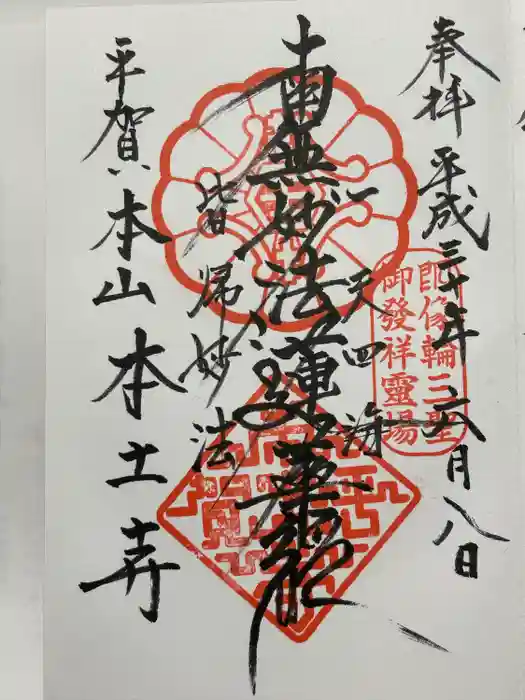 奉拝 平成三十年 六月八日
朗像輪三聖
御發祥靈場
一天四海
南無妙法蓮華経
皆帰妙法
平賀 本山 本土寺